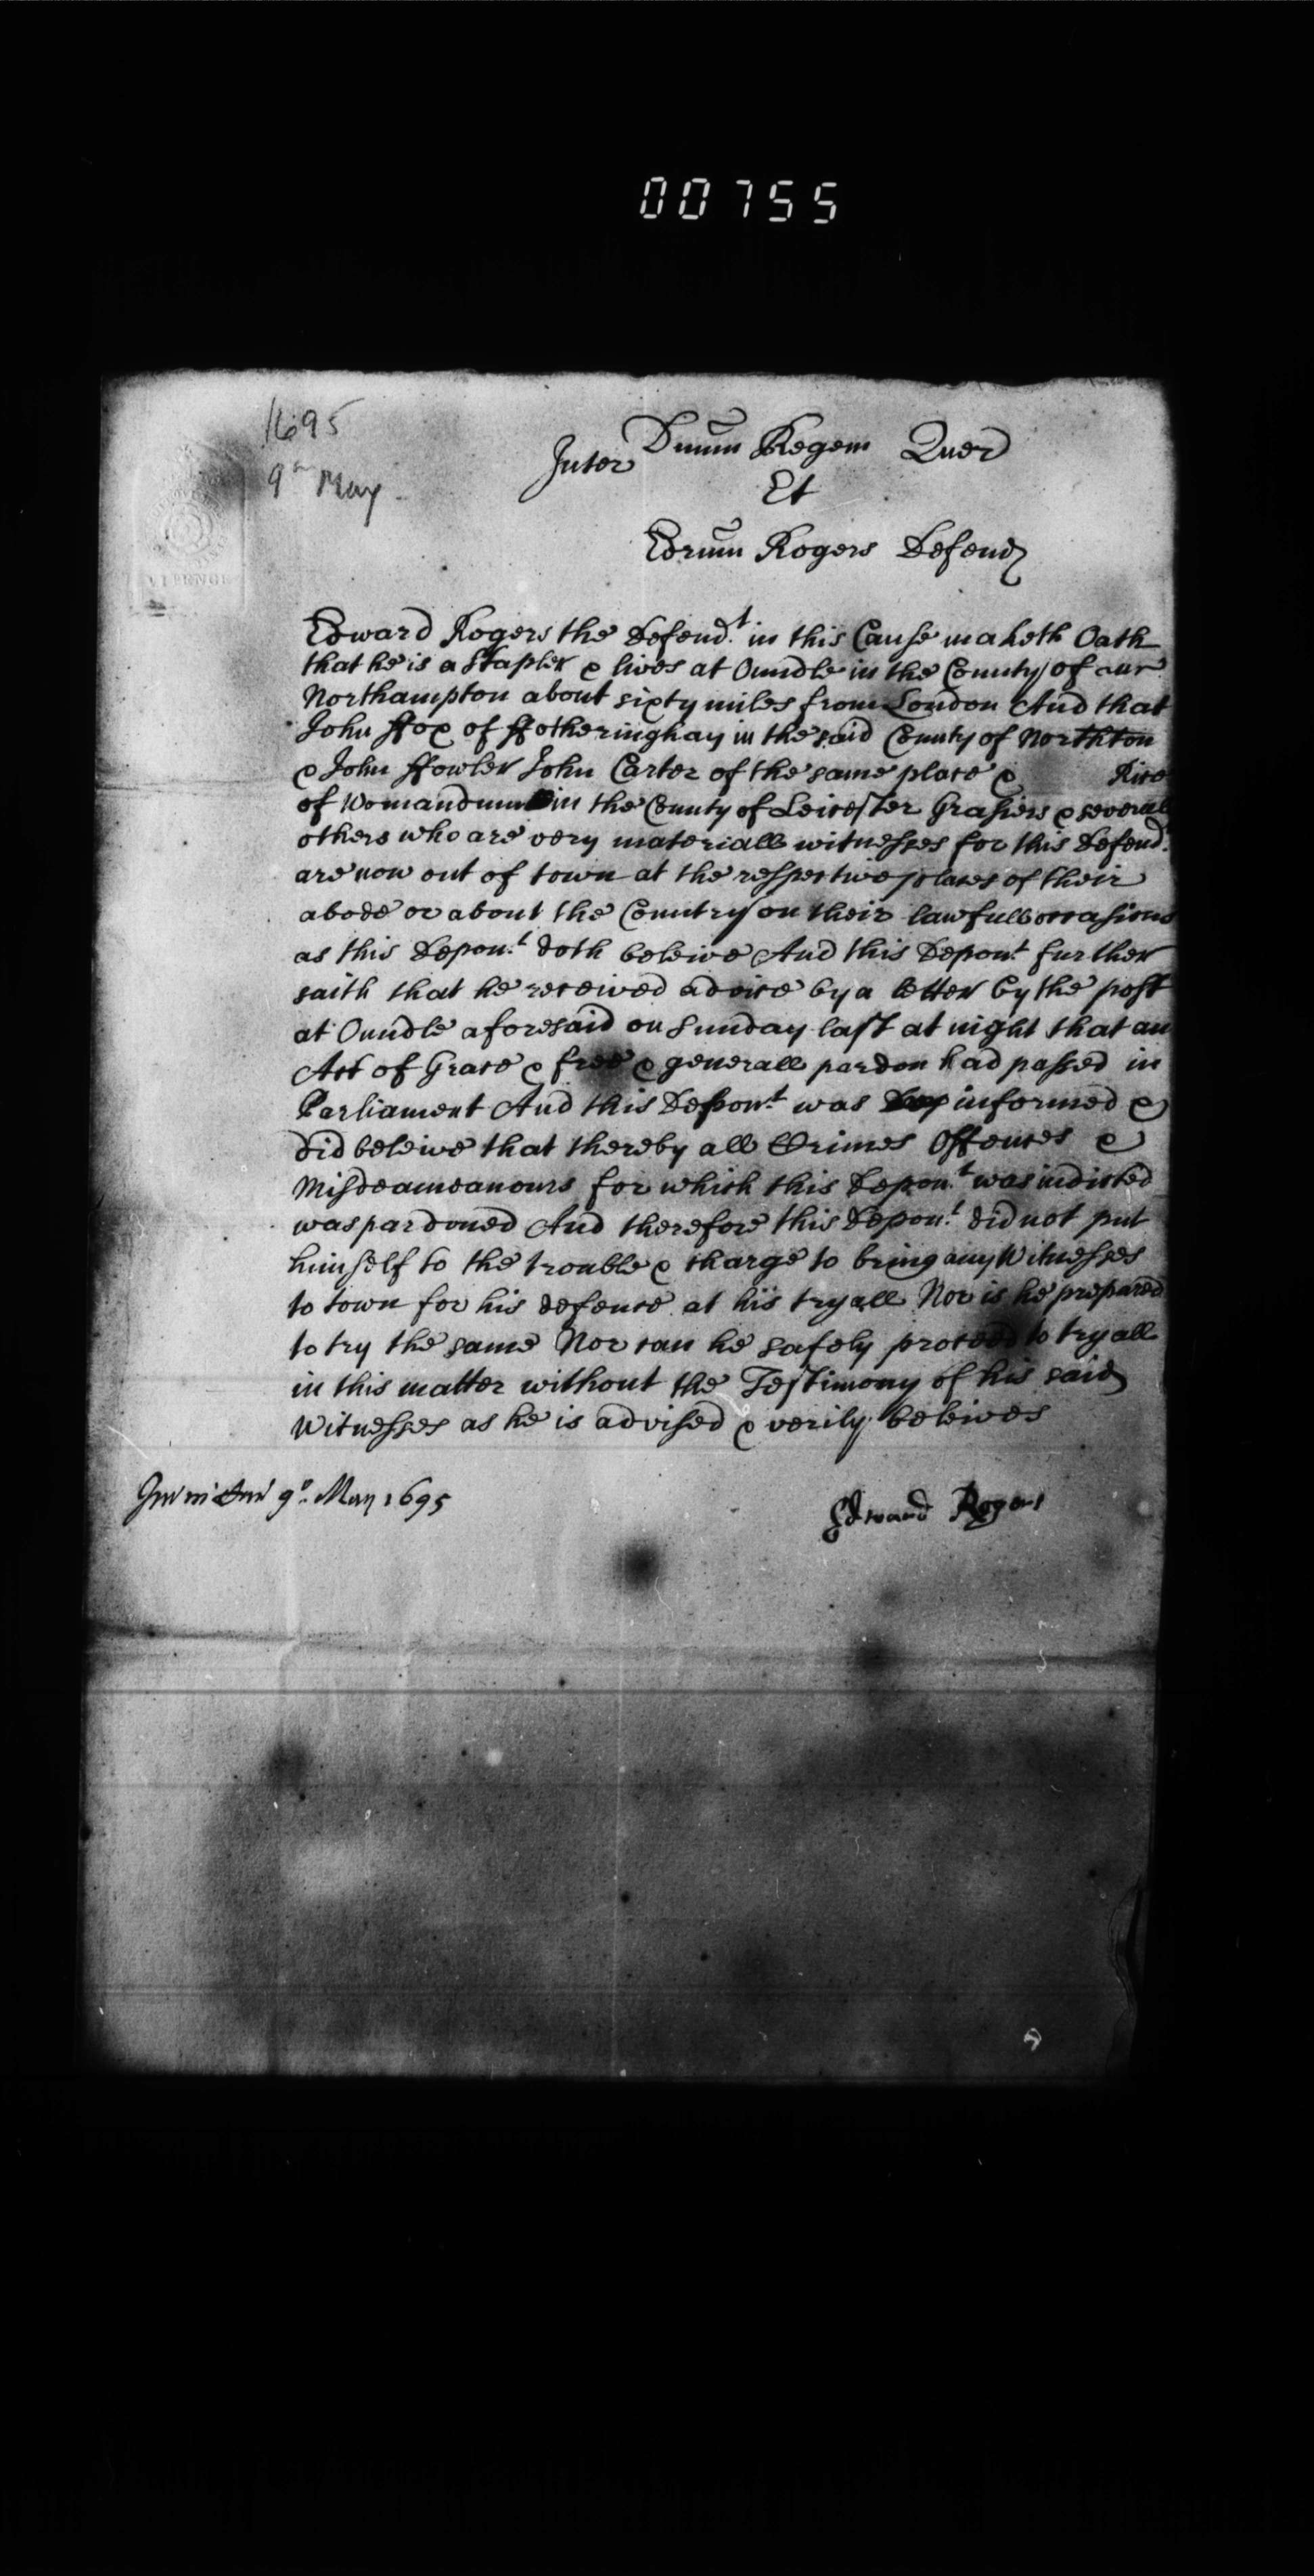 00755
1695
9th May
Inter Dnum Regem Quer
Et
Edrum Rogers Defend
Edward Rogers the Defend.t in this Cause maketh Oath
that he is a Stapler & lives at Oundle in the County of
Northampton about sixty miles from London And that
John ffox of ffotheringhay in the said County of Northton
& John ffowler John Carter of the same place & Rice
of in the County of Leicester Grasiers & severall
others who are very materiall witnesses for this Defend.t
are now out of town at the respective places of their
abode or about the Country on their lawfull occasions
as this Depon.t doth beleive And this Depon.t further
saith that he received advice by a letter by the post
at Oundle aforesaid on Sunday last at night that an
Act of Grace & free & generall pardon had passed in
Parliament And this Depon.t was informed &
did beleive that thereby all Crimes Offences &
Misdeameanours for which this Depon.t was indicted
was pardoned And therefore this Depon.t did not put
himself to the trouble & charge to bring any Witnesses
to town for his defence at his tryall Nor is he prepared
to try the same Nor can he safely proceed to tryall
in this matter without the Testimony of his said
Witnesses as he is advised & verily beleives
9o. May 1695
Edward Rogers